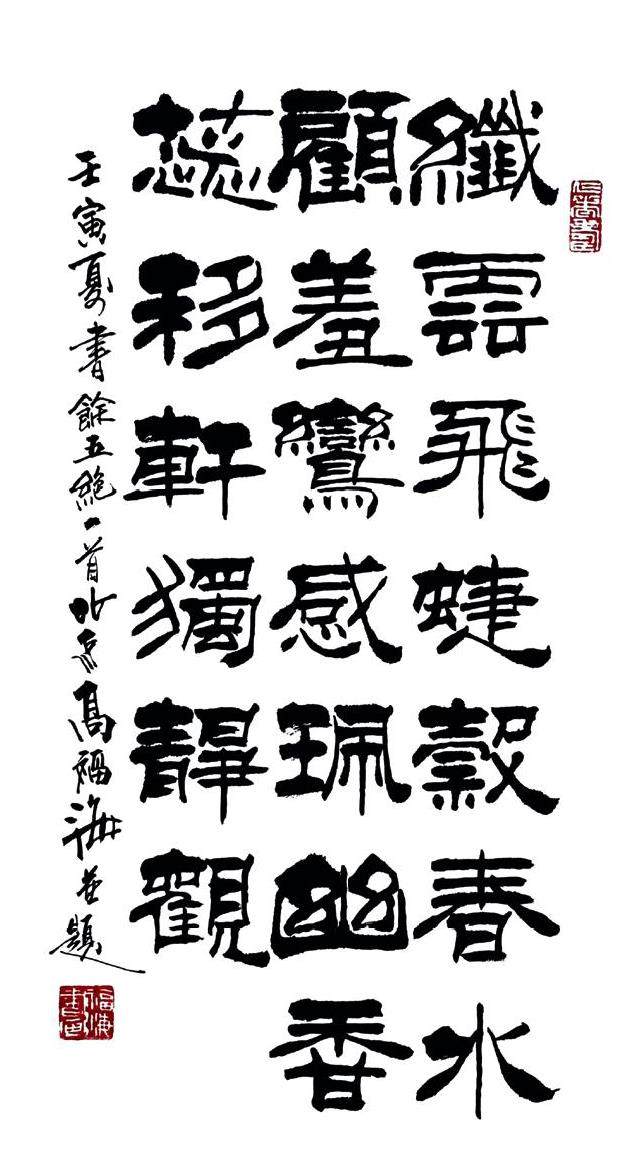 纖雲飛蜨縠春水
顧羞鸞感珮幽香
蕊移軒獨靜觀
壬寅夏書餘五絕一首北京高福海並題